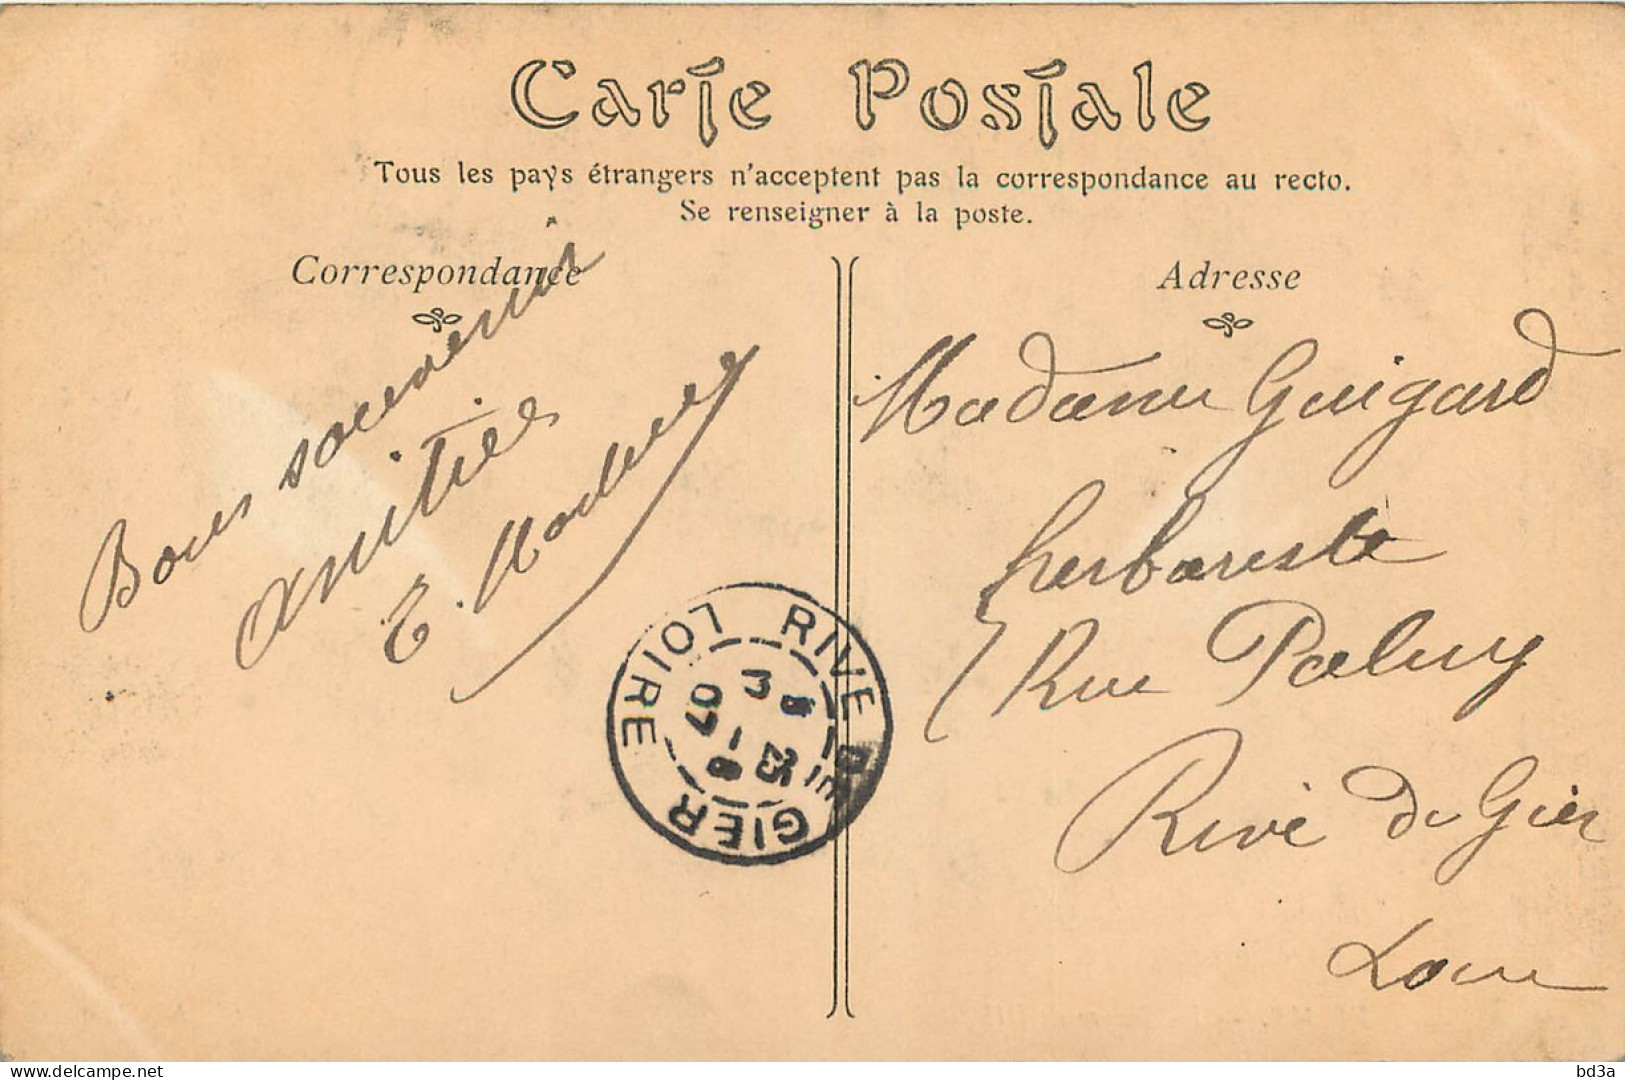 Carte Postale
Tous les pays étrangers n'acceptent pas la correspondance au recto.
Se renseigner à la poste.
Correspondance
Bons souvenir
amitiés
E.
Adresse
Madame Guigard
herboriste
Rue Paluy
Rive de Gier
Loire
RIVE DE GIER
LOIRE
delcampe.net
bd3a